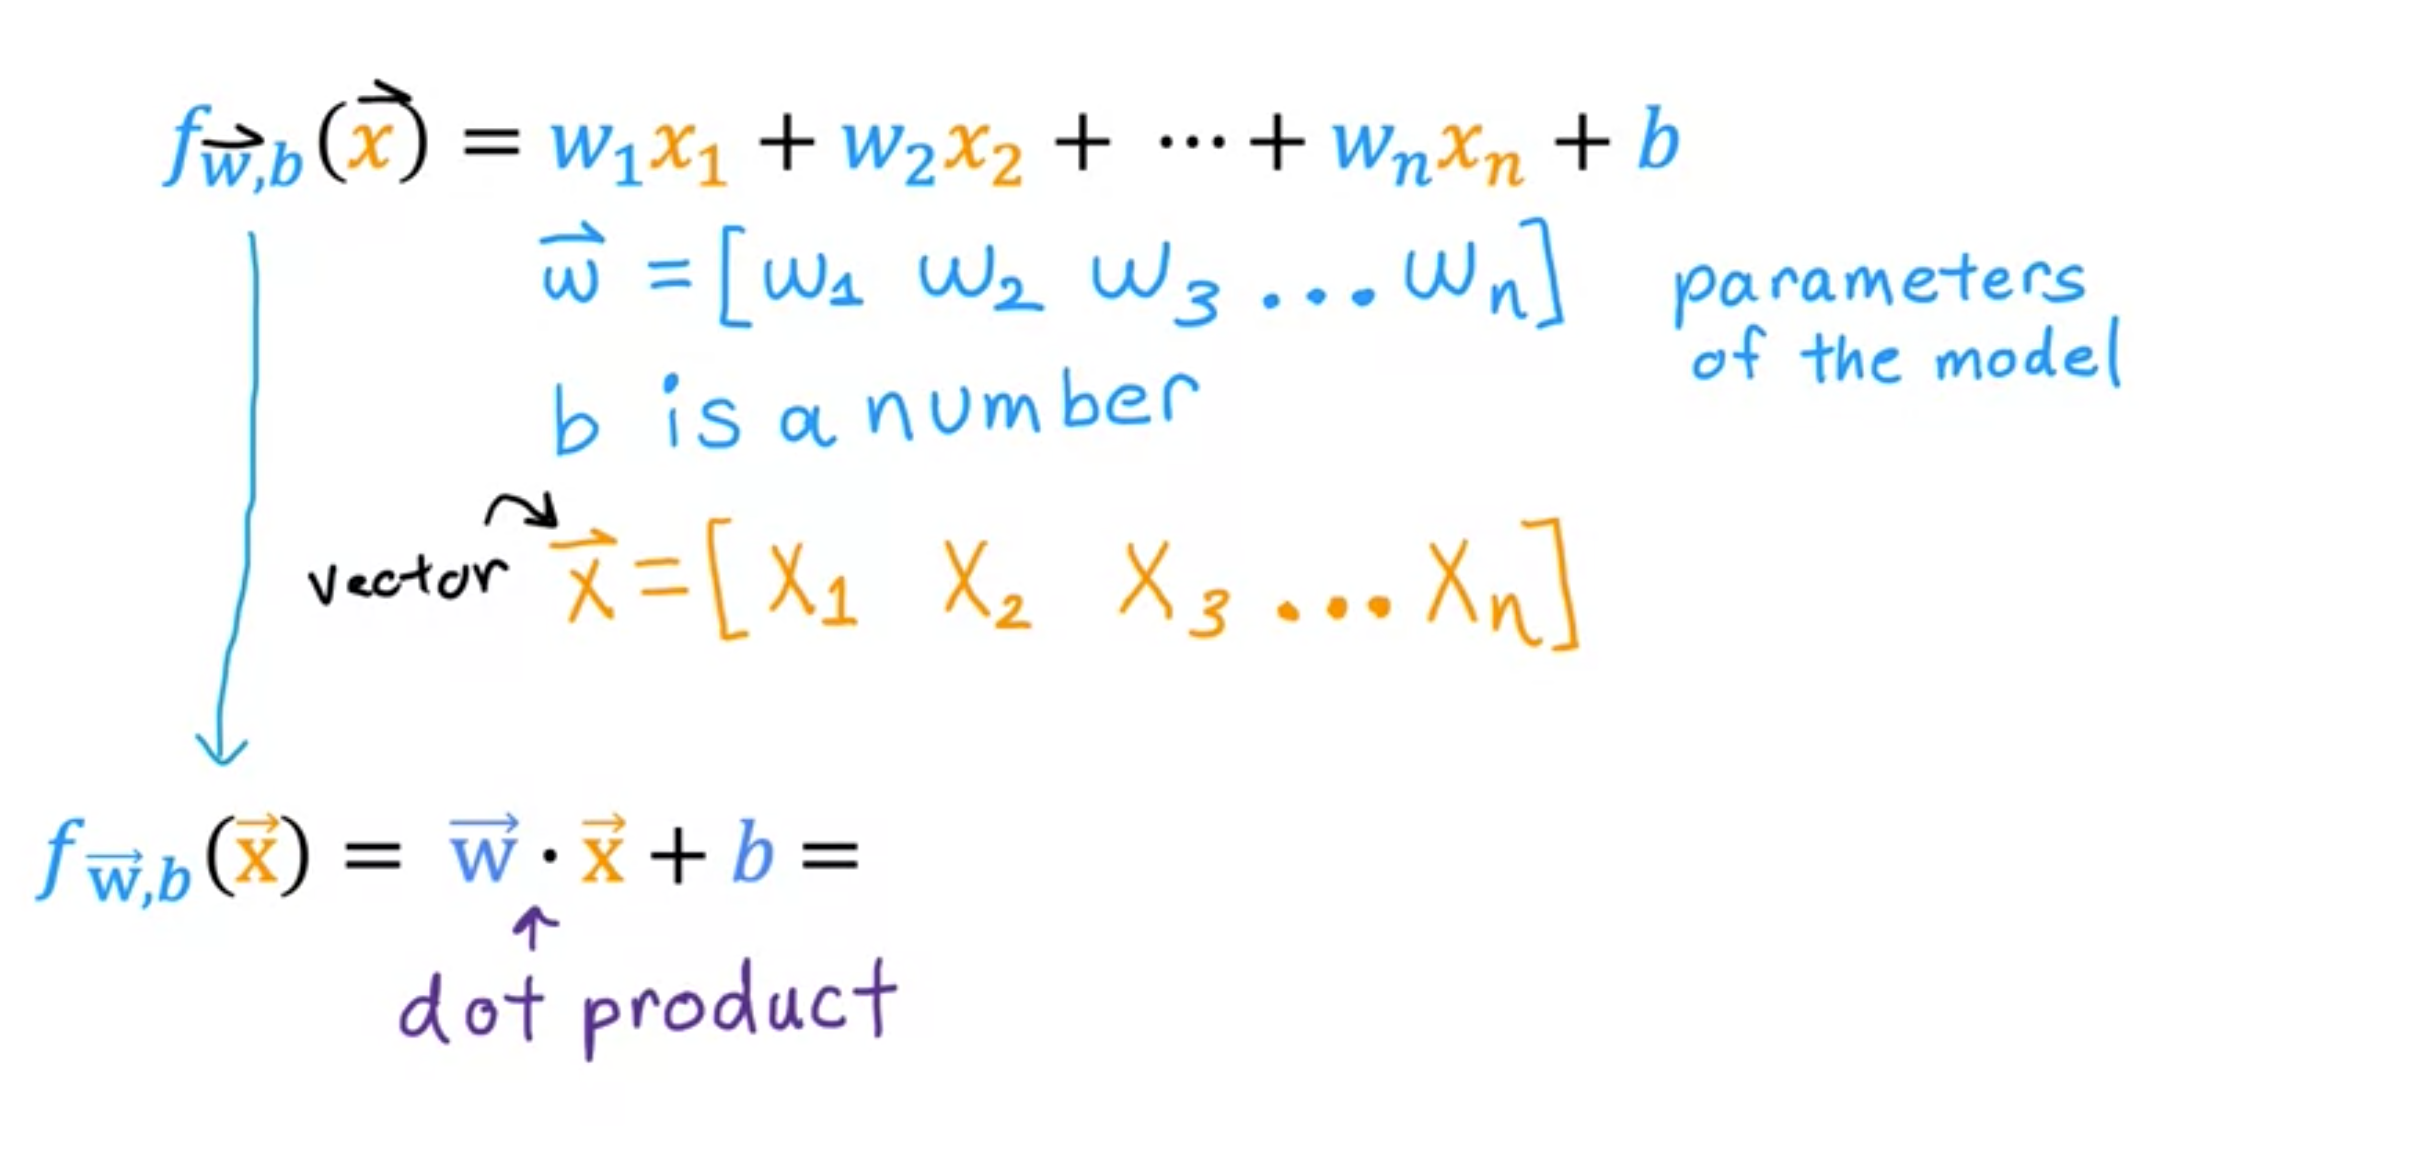 f w⃗,b (x⃗) = w₁x₁ + w₂x₂ + ⋯ + wₙxₙ + b
w⃗ = [w₁ w₂ w₃ ... wₙ]
parameters
of the model
b is a number
vector x⃗ = [x₁ x₂ x₃ ... xₙ]
f w⃗,b (x⃗) = w⃗ · x⃗ + b =
dot product